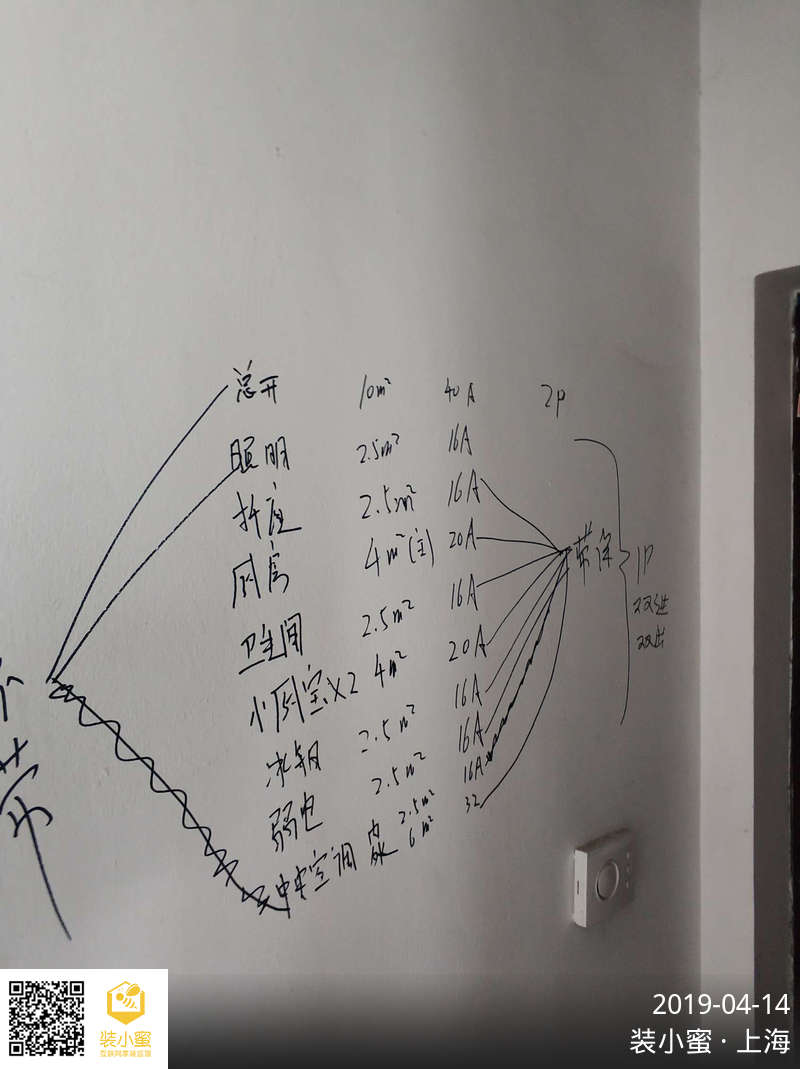 总开 10m² 40A 2P
照明 2.5m² 16A
插座 2.5m² 16A
厨房 4m²(主) 20A
卫生间 2.5m² 16A
小厨宝x2 4m² 20A
冰箱 2.5m² 16A
弱电 2.5m² 16A
中央空调 内 2.5m² 16A
6m² 32
不带
带保
1P
双进
双出
装小蜜
互联网家装监理
2019-04-14
装小蜜·上海